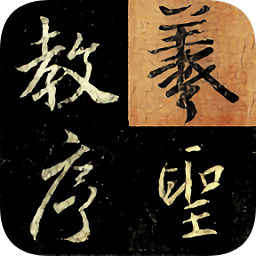 羲聖
教序